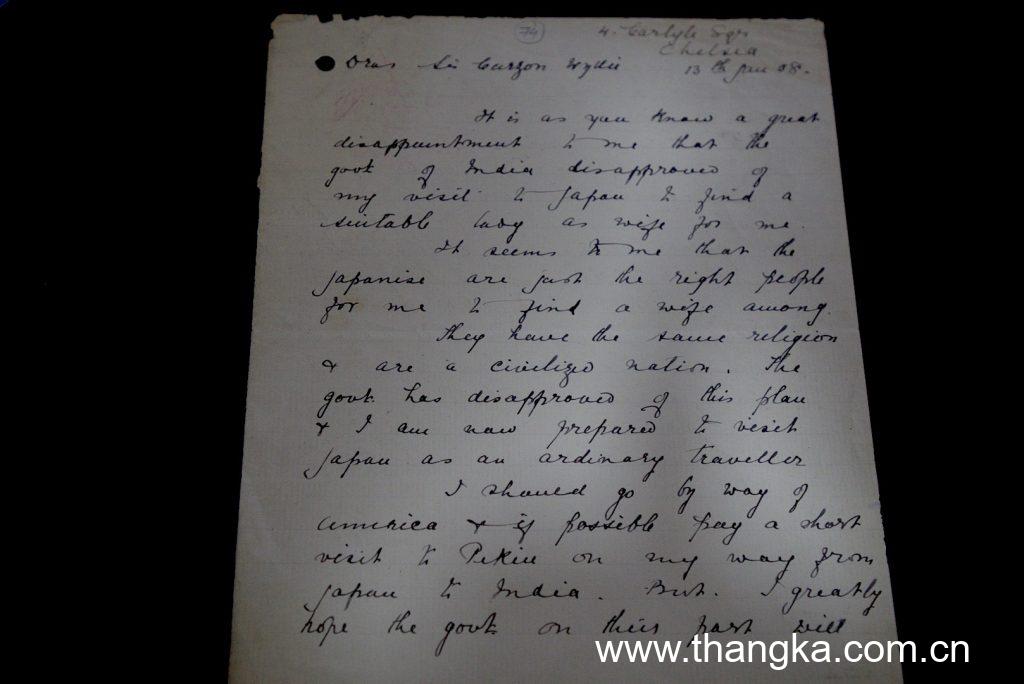 74
4. Carlyle Sqr
Chelsea
13th Jan 08.
Dear Sir Curzon Wylie
It is as you know a great
disappointment to me that the
govt of India disapproved of
my visit to Japan to find a
suitable lady as wife for me.
It seems to me that the
Japanise are just the right people
for me to find a wife among.
They have the same religion
& are a civilized nation. The
govt has disapproved of this plan
& I am now prepared to visit
Japan as an ordinary traveller
I should go by way of
America & if possible pay a short
visit to Pekin on my way from
Japan to India. But. I greatly
hope the govt on their part will
www.thangka.com.cn